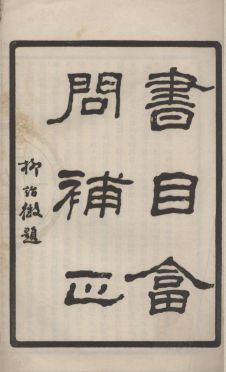 書目畣
問補正
柳詒徵題